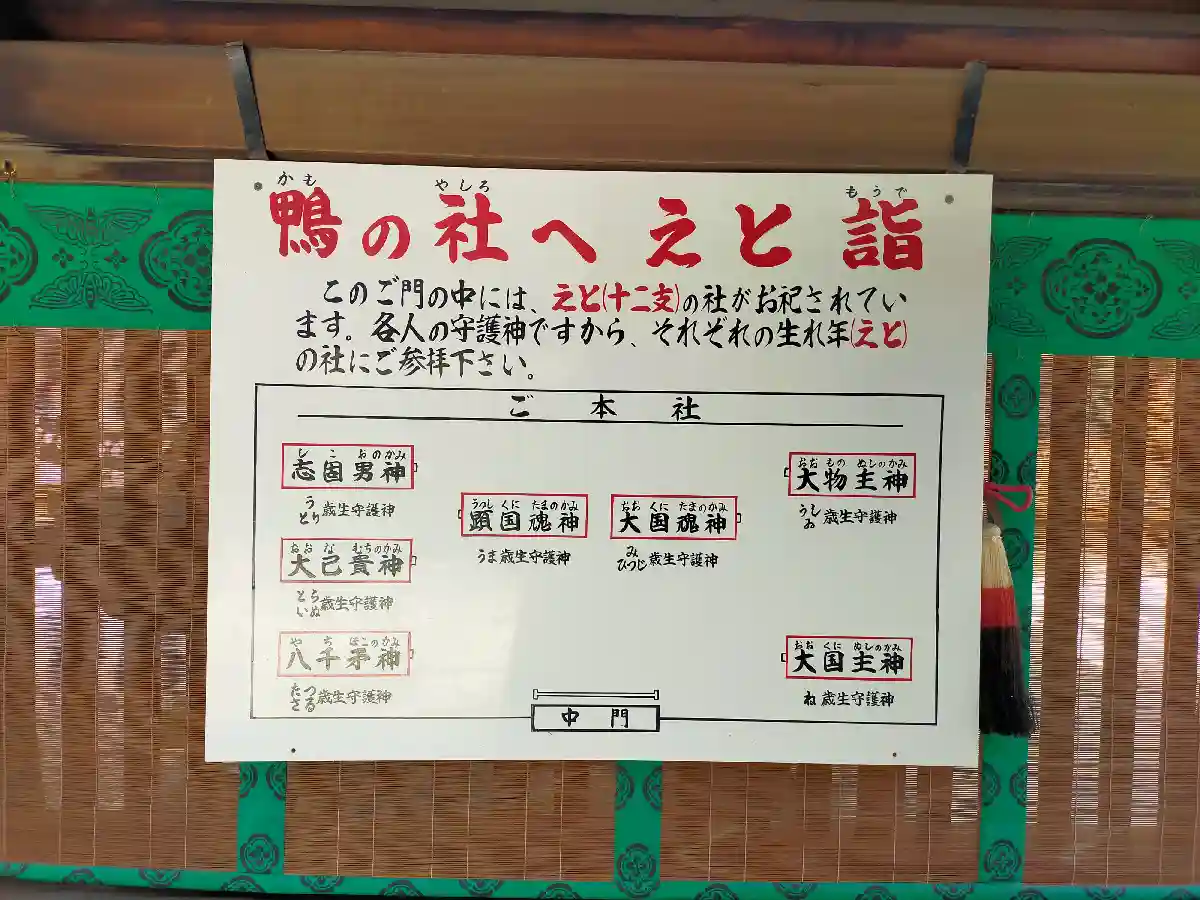 かも やしろ もうで
鴨の社へえと詣
このご門の中には、えと(十二支)の社がお祀されてい
ます。各人の守護神ですから、それぞれの生れ年(えと)
の社にご参拝下さい。
ご本社
しこ おのかみ
志固男神
う とり 歳生守護神
おおな むちのかみ
大己貴神
とら いぬ 歳生守護神
やち ほこのかみ
八千矛神
たつ さる 歳生守護神
うつし くに たまのかみ
顕国魂神
うま歳生守護神
おお くに たまのかみ
大国魂神
み ひつじ 歳生守護神
おお もの ぬしのかみ
大物主神
うし ゐ 歳生守護神
おお くに ぬしのかみ
大国主神
ね歳生守護神
中門